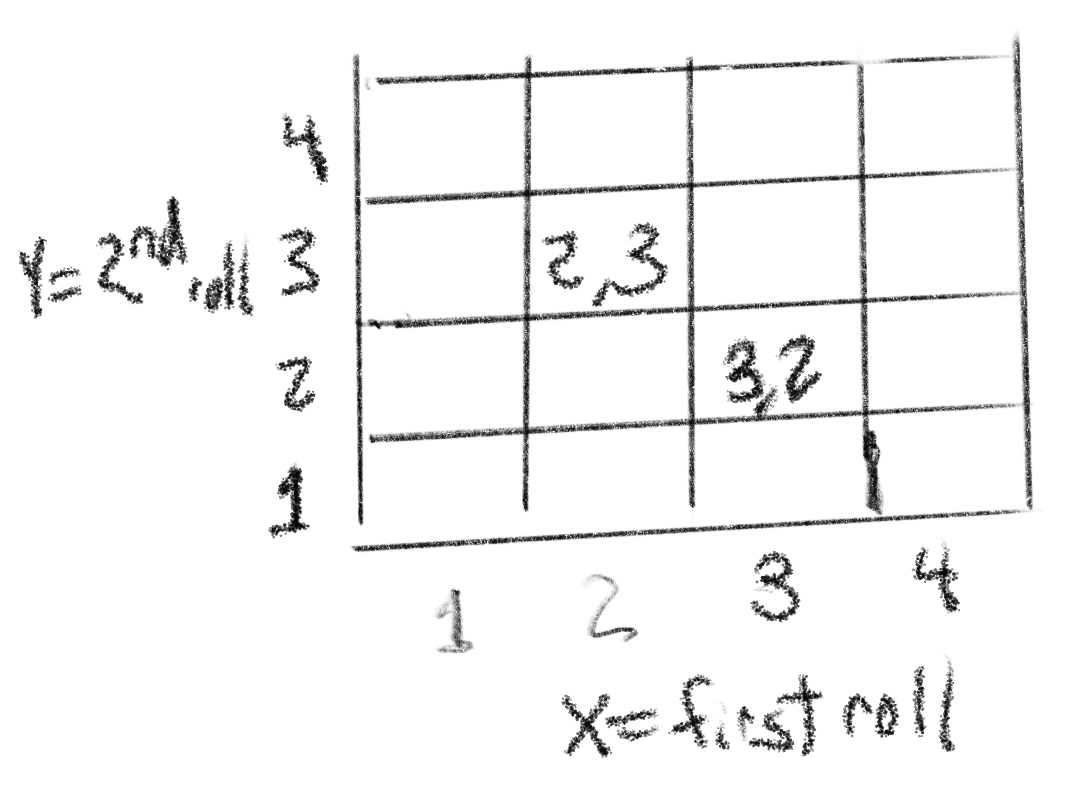 4
Y=2nd roll 3 2,3
2 3,2
1
1 2 3 4
X=first roll